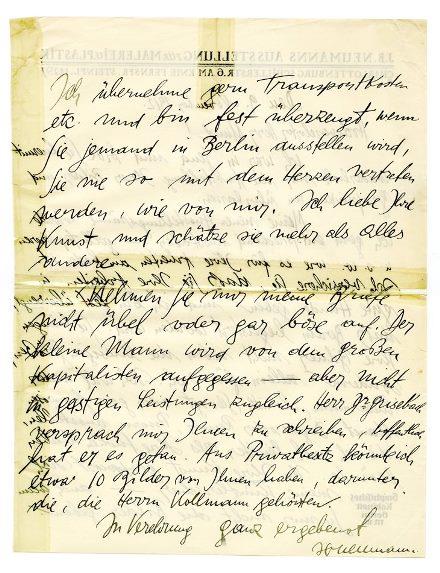 Ich übernehme gern Transportkosten
etc. und bin fest überzeugt, wenn
Sie jemand in Berlin ausstellen wird,
Sie nie so mit dem Herzen vertreten
werden, wie von mir. Ich liebe Ihre
Kunst und schätze sie mehr als Alles
andere.
Nehmen Sie mir meine Briefe
nicht übel oder gar böse auf. Der
kleine Mann wird von dem großen
Kapitalisten aufgegessen — aber nicht
in geistigen Leistungen zugleich. Herr Dr.
versprach mir Ihnen zu schreiben, hoffentlich
hat er es getan. Aus Privatbesitz könnte ich
etwa 10 Bilder von Ihnen haben, darunter
die, die Herrn Kollmann gehörten.
In Verehrung ganz ergebenst
J.B. NEUMANNS AUSSTELLUNG MALEREI PLASTIK